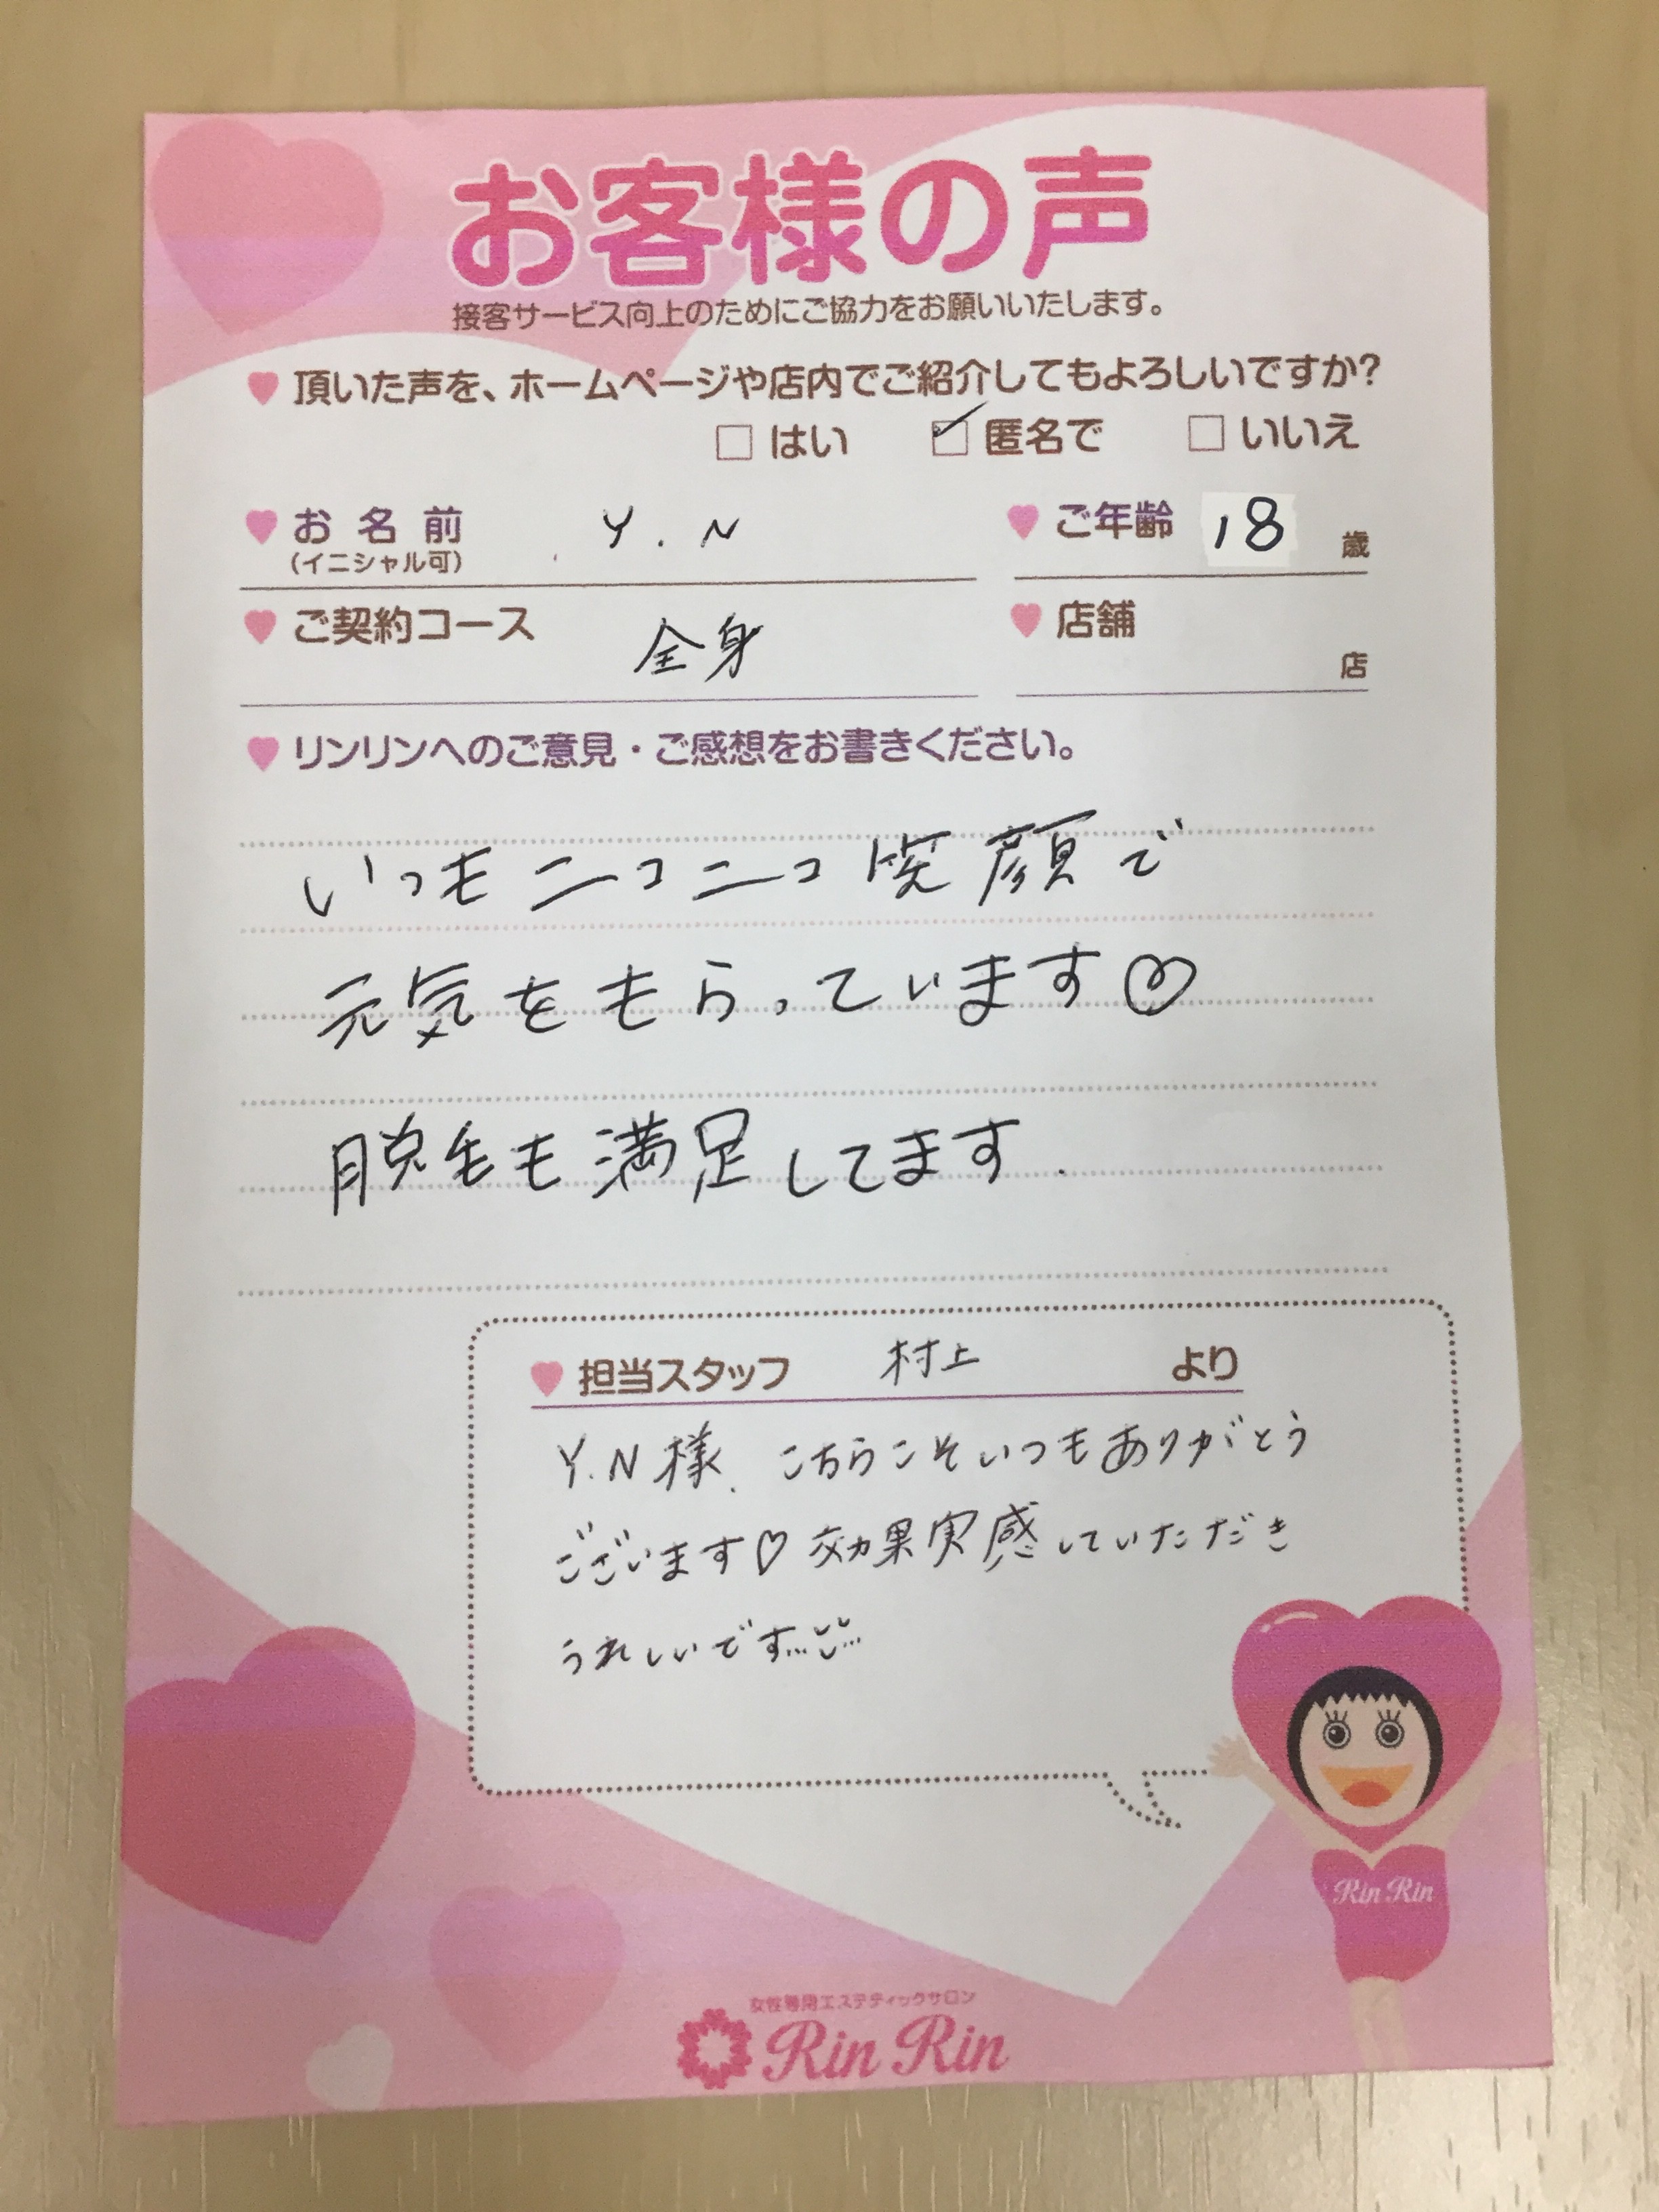 お客様の声
接客サービス向上のためにご協力をお願いいたします。
頂いた声を、ホームページや店内でご紹介してもよろしいですか?
はい 匿名で いいえ
お名前 Y.N ご年齢 18 歳
(イニシャル可)
ご契約コース 全身 店舗 店
リンリンへのご意見・ご感想をお書きください。
いつもニコニコ笑顔で
元気をもらっています♡
脱毛も満足してます.
担当スタッフ 村上 より
Y.N様、こちらこそいつもありがとう
ございます♡効果実感していただき
うれしいです
Rin Rin
女性専用エステティックサロン
Rin Rin